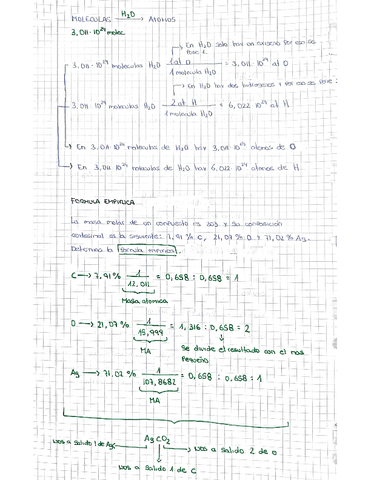 MOLÉCULAS H₂O → ÁTOMOS
3,011·10²⁴ molec
↳ En H₂O solo hay un oxígeno por eso se
3,011·10²⁴ moléculas H₂O 1 at O / 1 molécula H₂O = 3,011·10²⁴ at O
↳ En H₂O hay dos hidrógenos y por eso se
3,011·10²⁴ moléculas H₂O 2 at H / 1 molécula H₂O = 6,022·10²⁴ at H
↳ En 3,011·10²⁴ moléculas de H₂O hay 3,011·10²⁴ átomos de O
↳ En 3,011·10²⁴ moléculas de H₂O hay 6,022·10²⁴ átomos de H
FÓRMULA EMPÍRICA
La masa molar de un compuesto es y su composición
centesimal es la siguiente: 7,91% C, 21,07% O y 71,02% Ag.
Determina la fórmula empírica.
C → 7,91% 1 / 12,011 = 0,658 : 0,658 = 1
Masa atómica
O → 21,07% 1 / 15,999 = 1,316 : 0,658 = 2
MA
Se divide el resultado con el más
pequeño
Ag → 71,02% 1 / 107,8682 = 0,658 : 0,658 = 1
MA
AgCO₂
nos a salido 1 de Ag
nos a salido 2 de O
nos a salido 1 de C